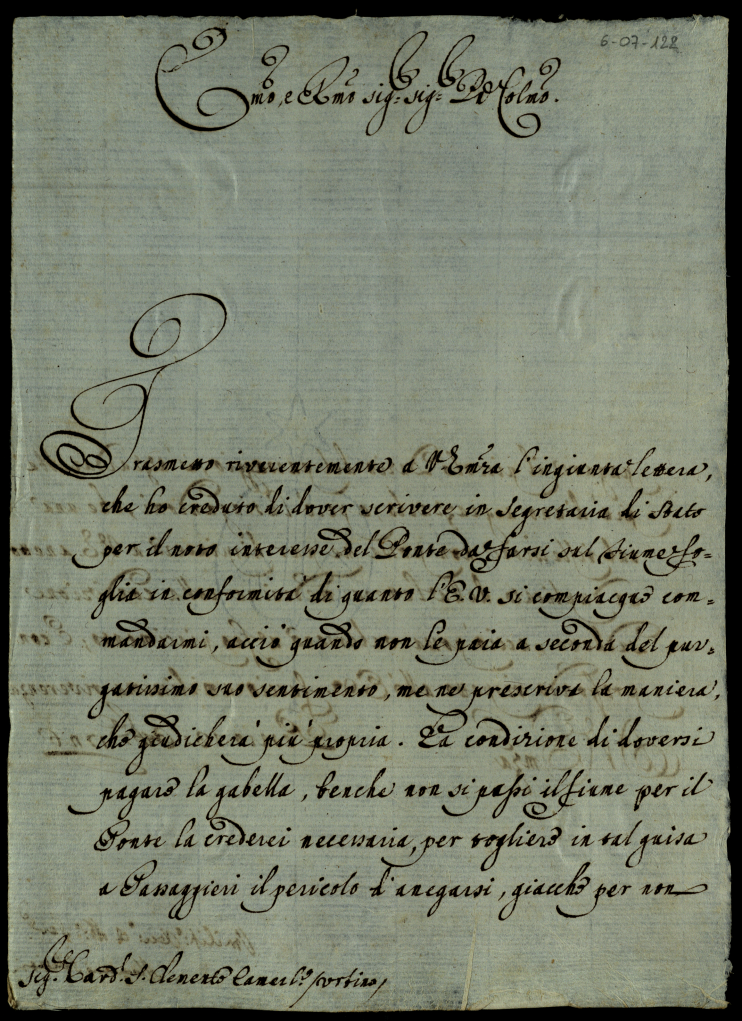 6-07-122
Emo, e Rmo sig:r sig:r Pñe Colmo.
Trasmetto riverentemente a V Emza l'ingiunta lettera,
che ho creduto di dover scrivere in Segretaria di Stato
per il noto interesse del Ponte da farsi sul fiume fo=
glia in conformità di quanto l'E.V. si compiacque com=
mandarmi, acciò quando non le paia a seconda del pur=
gatissimo suo sentimento, me ne prescriva la maniera,
che giudicherà più propria. La condizione di doversi
pagare la gabella, benche non si passi il fiume per il
Ponte la crederei necessaria, per togliere in tal guisa
a Passaggieri il pericolo d'anegarsi, giacche per non
sig:r Card.l S. Clemente Camerl.o